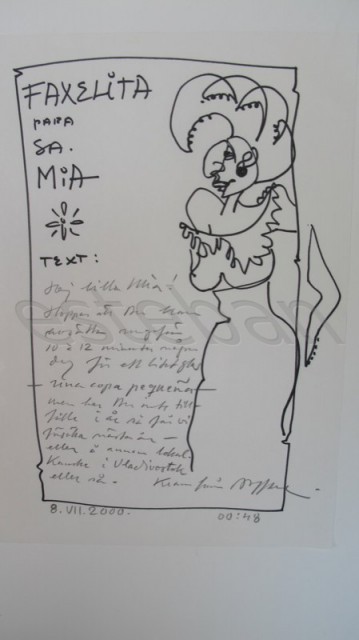 FAXELITA
PARA
SA.
MIA
TEXT:
Säg lilla Mia!
Hoppas att Du kan
avsätta ungefär
10 à 12 minuter någon
dag för ett litet glas
— una copa pequeña —
men har Du inte till-
fälle i år så får vi
försöka nästa år —
eller å annan lokal.
Kanske i Vladivostok
eller så.
Kram från
8.VII.2000.
00:48